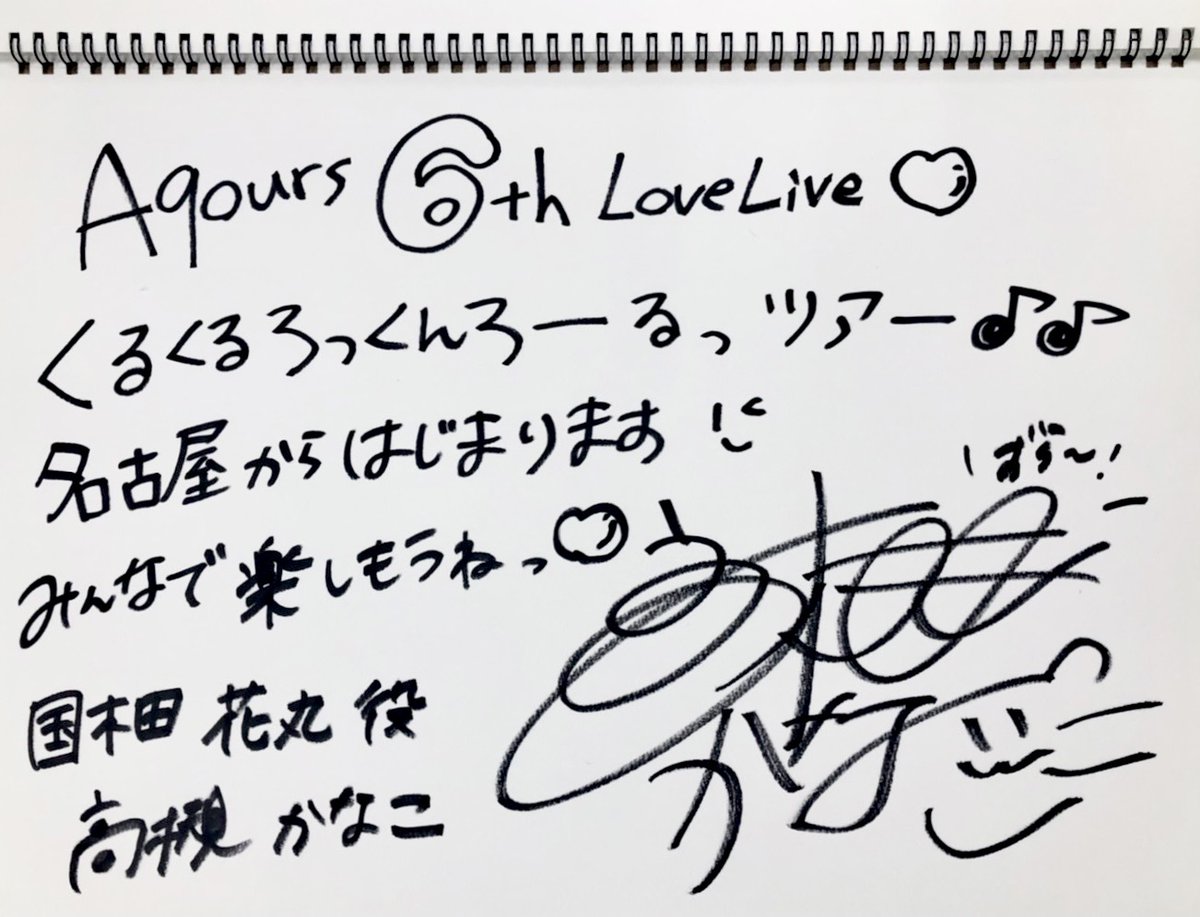 Aqours 6th LoveLive♡
くるくるろっくんろーるっ ツアー♪♪
名古屋からはじまります
みんなで楽しもうねっ♡
国木田 花丸 役
高槻 かなこ
ずら〜!